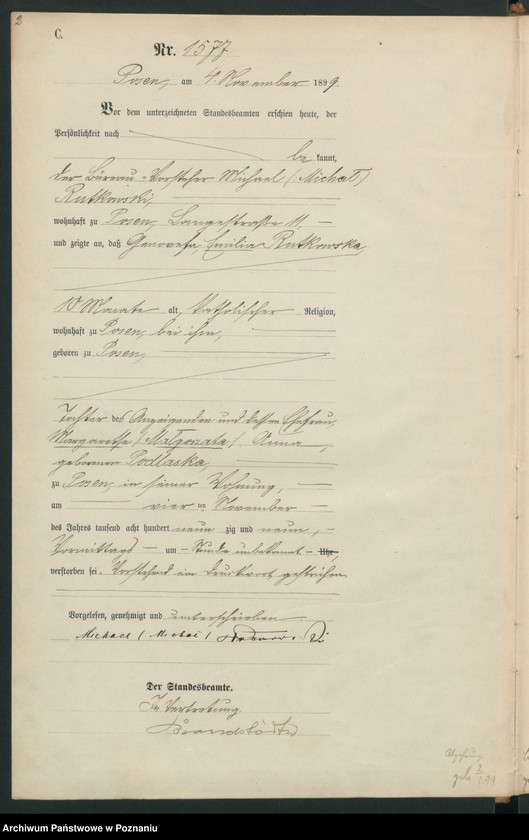 2
C.
Nr. 1577
Posen, am 4. November 1899.
Vor dem unterzeichneten Standesbeamten erschien heute, der
Persönlichkeit nach
be kannt,
der Büreau-Vorsteher Michael (Michał)
Rutkowski,
wohnhaft zu Posen, Langestraße 11,
und zeigte an, daß Genovefa, Emilia Rutkowska,
10 Monate alt, katholischer Religion,
wohnhaft zu Posen, bei ihm,
geboren zu Posen,
Tochter des Anzeigenden und dessen Ehefrau,
Margarethe (Małgorzata) Anna,
geborenen Podlaska,
zu Posen, in seiner Wohnung,
am vier ten November
des Jahres tausend acht hundert neun zig und neun,
Vormittags um Stunde unbekannt Uhr,
verstorben sei. Vorstehend ein Druckwort gestrichen.
Vorgelesen, genehmigt und unterschrieben
Michael (Michał)
Der Standesbeamte.
In Vertretung.
geb. 2/1.99
Archiwum Państwowe w Poznaniu